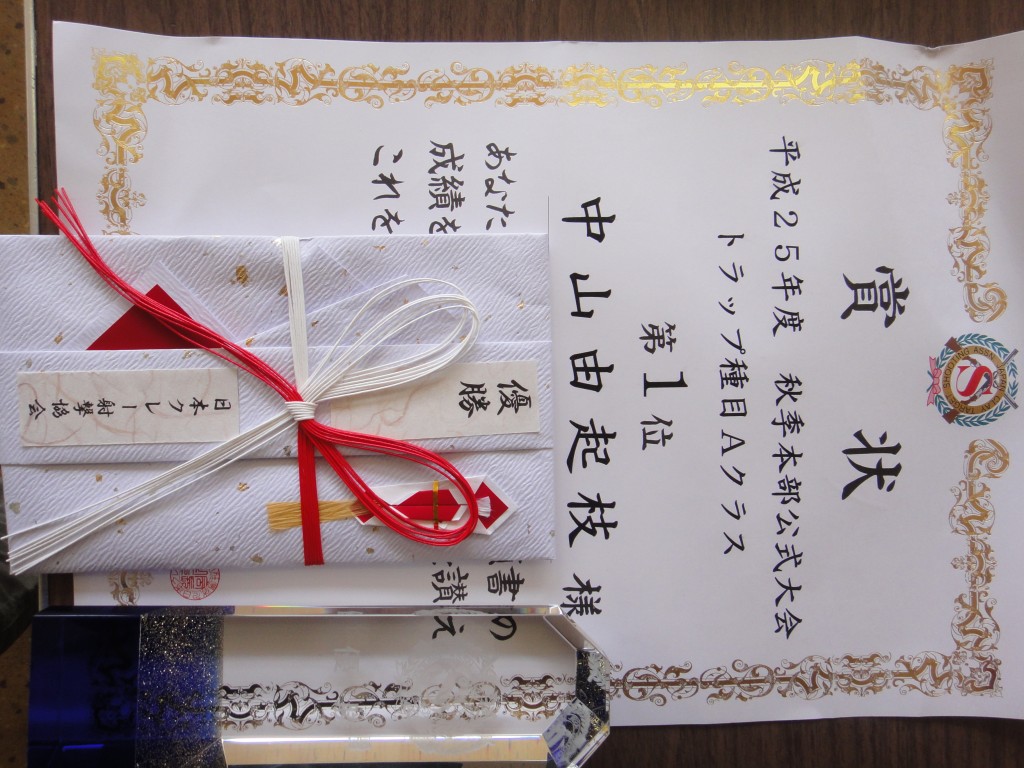 賞状
平成２５年度　秋季本部公式大会
トラップ種目Ａクラス
第１位
中山由起枝様
あなた
の
成績を
書
讃え
これを
優勝
日本クレー射撃協会